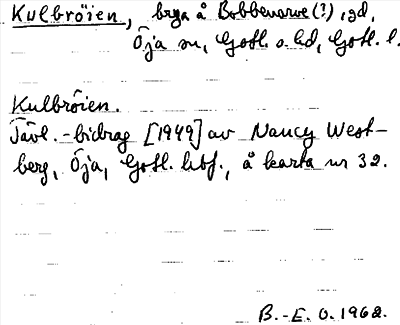 Kulbröien, brya å Bobbenarve (?), gd,
Öja sn, Gotl. s. hd, Gotl. l.
Kulbröien.
Tävl.-bidrag [1949] av Nancy West-
berg, Öja, Gotl. hbf., å karta nr 32.
B.-E. O. 1962.